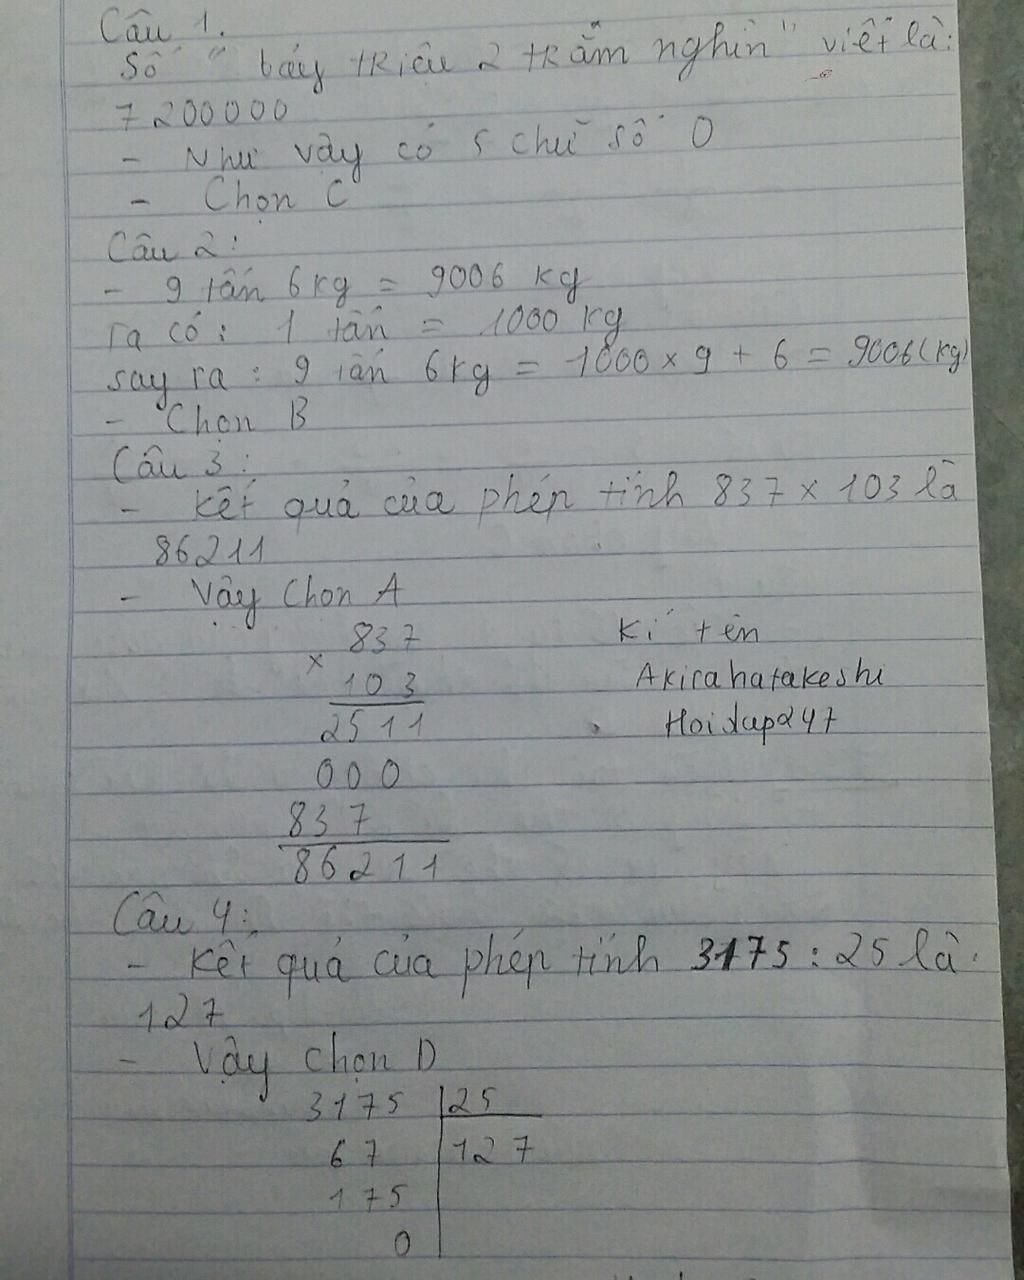 Câu 1.
Số " bảy triệu 2 trăm nghìn" viết là:
7 200000
- Như vậy có 5 chữ số 0
- Chọn C
Câu 2:
- 9 tấn 6kg = 9006 kg
Ta có: 1 tấn = 1000 kg
say ra: 9 tấn 6kg = 1000 x 9 + 6 = 9006(kg)
- Chọn B
Câu 3:
- Kết quả của phép tính 837 x 103 là
86211
- Vậy Chọn A
837
x
103
2511
000
837
86211
Kí tên
Akirahatakeshi
Hoidap247
Câu 4:
- Kết quả của phép tính 3175 : 25 là.
127
- Vậy chọn D
3175 25
67 127
175
0